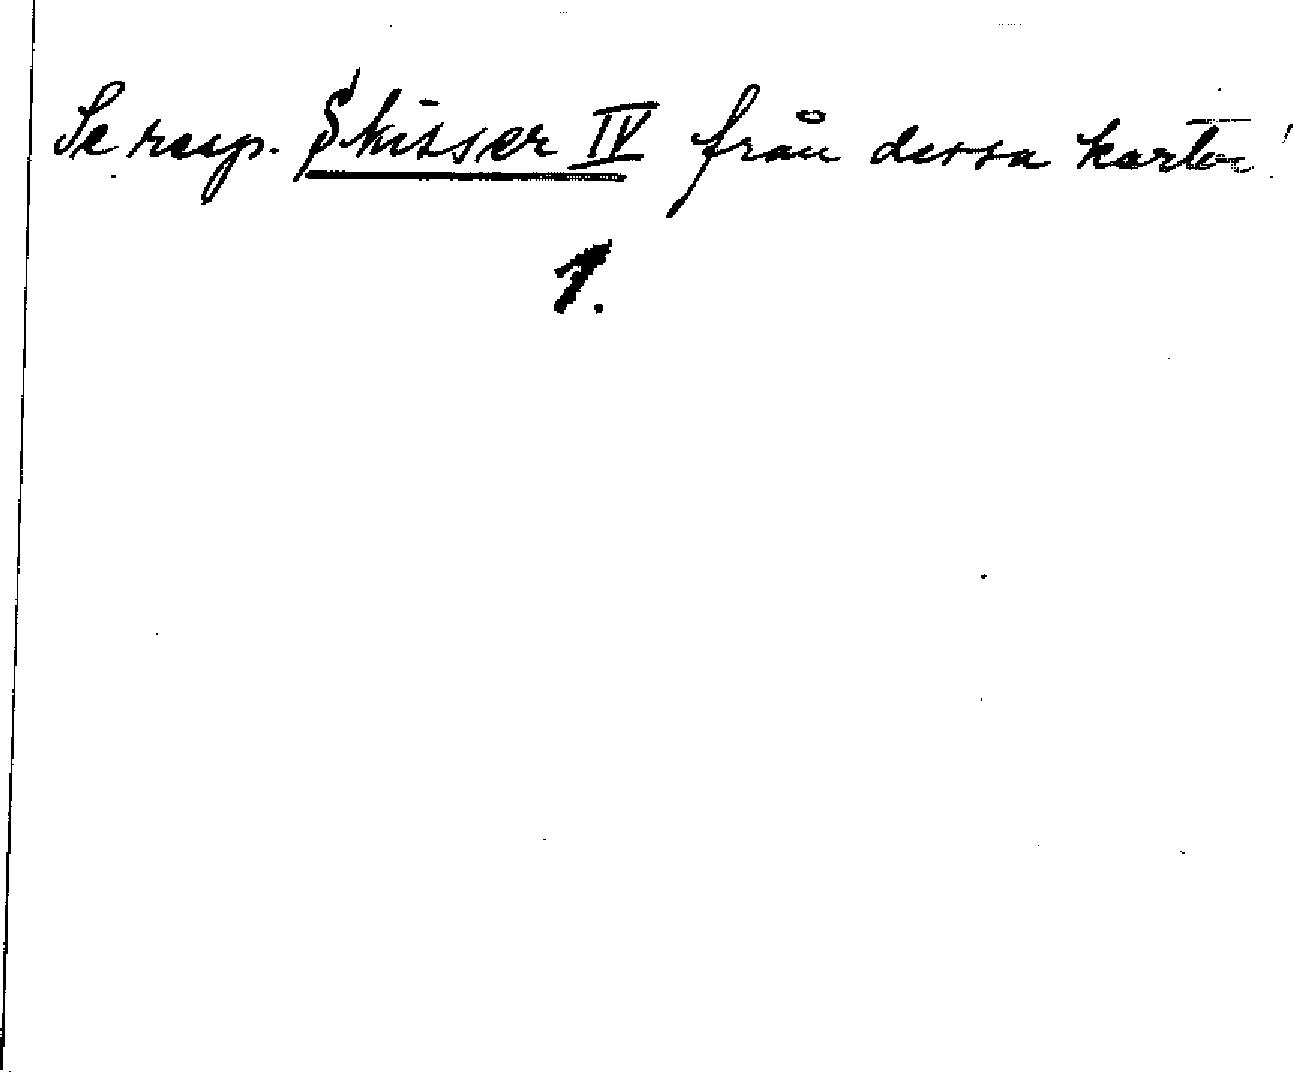 Se resp. Skisser IV från dessa kartor!
1.